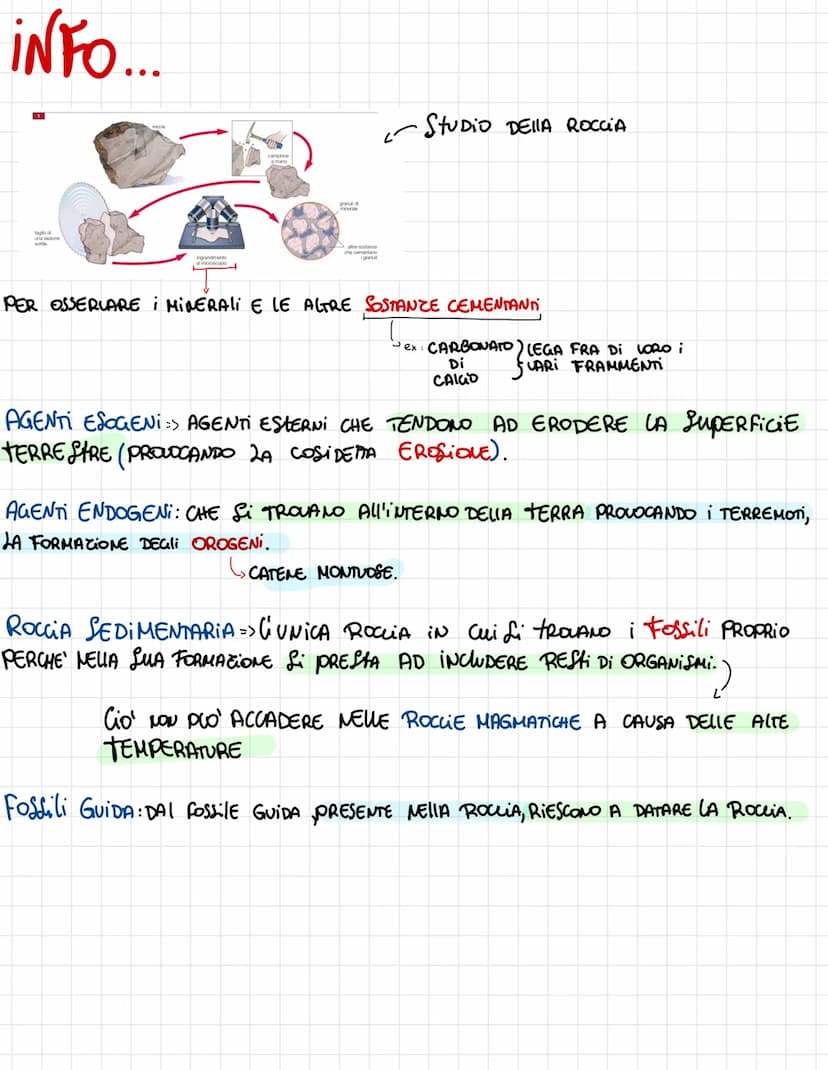 INFO...
1
roccia
STUDIO DELLA ROCCIA
campione
a mano
granuli di
minerale
taglio di
una sezione
sottile
ingrandimento
al microscopio
altre sostanze
che cementano
i granuli
PER OSSERVARE i MINERALI E LE ALTRE SOSTANZE CEMENTANTI
ex: CARBONATO DI CALCIO
LEGA FRA DI LORO i
VARI FRAMMENTI
AGENTI ESOGENI => AGENTI ESTERNI CHE TENDONO AD ERODERE LA SUPERFICIE
TERRESTRE (PROVOCANDO LA COSIDETTA EROSIONE).
AGENTI ENDOGENI: CHE SI TROVANO All'INTERNO DELLA TERRA PROVOCANDO i TERREMOTI,
LA FORMAZIONE DEGLI OROGENI.
CATENE MONTUOSE.
ROCCIA SEDIMENTARIA => L'UNICA ROCCIA IN CUI SI TROVANO i FOSSILI PROPRIO
PERCHE' NELLA SUA FORMAZIONE SI PRESTA AD INCLUDERE RESTI DI ORGANISMI.
CIO' NON PUO' ACCADERE NELLE ROCCIE MAGMATICHE A CAUSA DELLE ALTE
TEMPERATURE
FOSSILI GUIDA: DAL FOSSILE GUIDA PRESENTE NELLA ROCCIA, RIESCONO A DATARE LA ROCCIA.